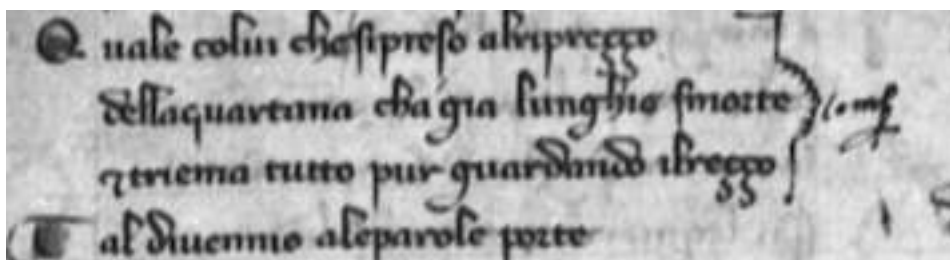 Quale colui chesipreso alripreçço
dellaquartana cha gia lunghie smorte
⁊triema tutto pur guardando ilreçço
Tal diuennio aleparole porte